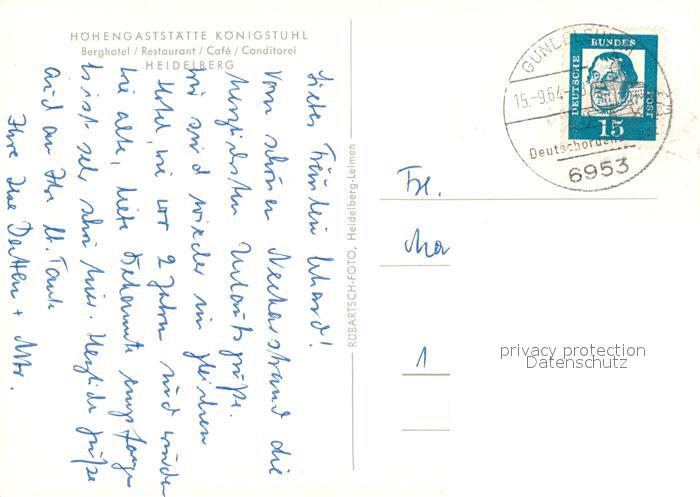 HÖHENGASTSTÄTTE KÖNIGSTUHL
Berghotel / Restaurant / Café / Conditorei
HEIDELBERG
Liebes Fräulein
Vom schönen Neckarstrand die
herzlichsten Urlaubsgrüße.
Wir sind wieder im gleichen
Hotel, wie vor 2 Jahren und wurden
wie alte, liebe Bekannte empfangen
Es ist sehr schön hier. Herzliche Grüße
auch an Ihre lb. Tante
Ihre
RUBARTSCH-FOTO, Heidelberg-Leimen
15.-9.64
DEUTSCHE BUNDESPOST
15
6953
Frl.
1
privacy protection
Datenschutz